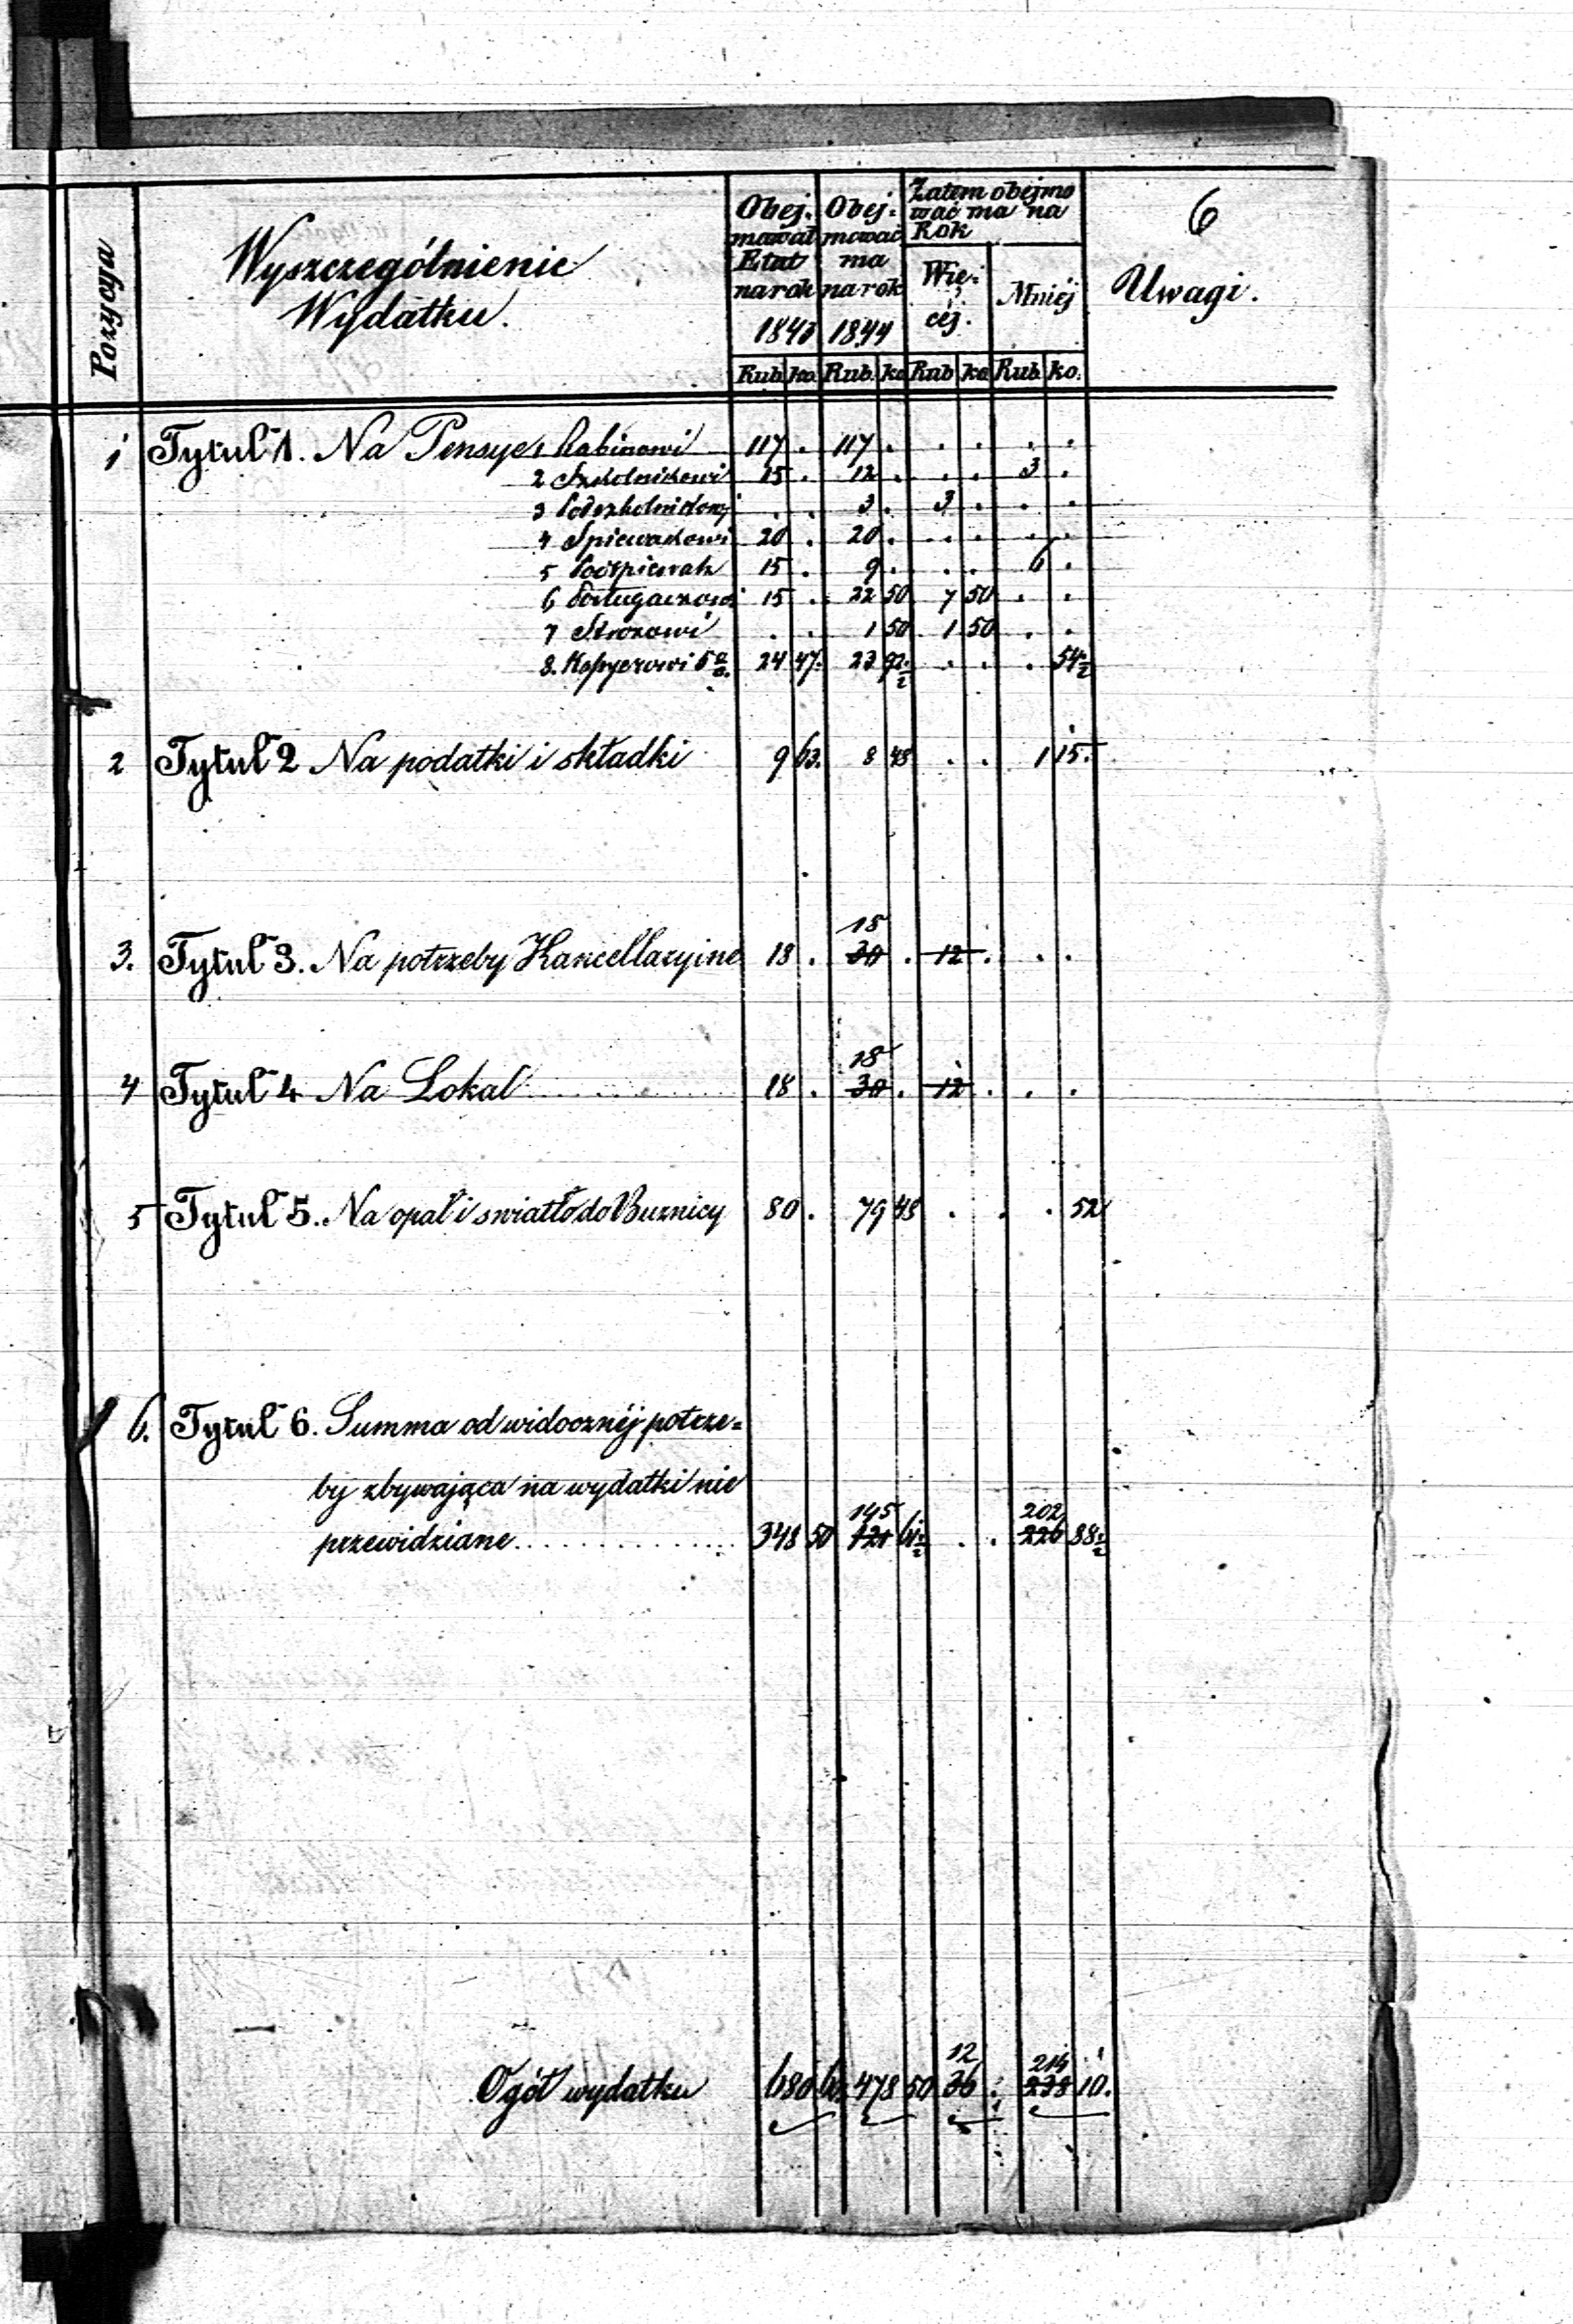 6
Pozycya
Wyszczególnienie
Wydatku.
Obej.
mował
Etat
na rok
1843
Obej:
mować
ma
na rok
1844
Zatem obejmo
wać ma na
Rok
Wię:
céj.
Mniéj
Uwagi.
Rub ko. Rub. ko Rub ko Rub. ko.
1 Tytuł 1. Na Pensye 1 Rabinowi 117 . 117 . . . . .
2 Szkolnikowi 15 . 12 . . . 3 .
3 Podszkolnikowi . . 3 . 3 . . .
4 Spiewakowi 20 . 20 . . . . .
5 Podspiewak 15 . 9 . . . 6 .
6 15 . 22 50 7 50 . .
7 Strozowi . . 1 50 1 50 . .
8. Kassyerowi 5 24 47. 23 92½ . . . 54½
2 Tytuł 2 Na podatki i składki 9 63. 8 48 . . 1 15.
18
3. Tytuł 3. Na potrzeby Kancellaryine 18 . 30 . 12 . . .
18
4 Tytuł 4 Na Lokal 18 . 30 . 12 . . .
5 Tytuł 5. Na opał i swiatło do Buznicy 80 . 79 48 . . . 52
6. Tytuł 6. Summa od widocznéj potrze=
by zbywająca na wydatki nie
145 202
przewidziane. . . . . . . . . . . . . . 348 50 121 61½ . . 226 88½
12 214
Ogół wydatku 680 60. 478 50 36 . 238 10.